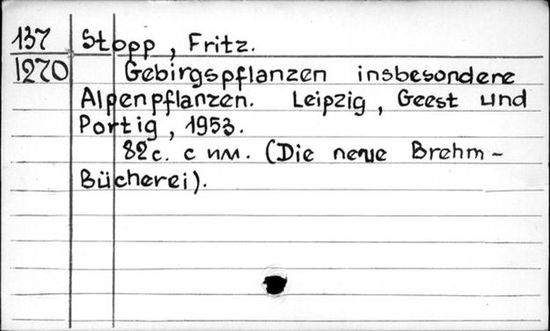 137 Stopp, Fritz.
1270 Gebirgspflanzen insbesondere
Alpenpflanzen. Leipzig, Geest und
Portig, 1953.
82с. с илл. (Die neue Brehm-
Bücherei).